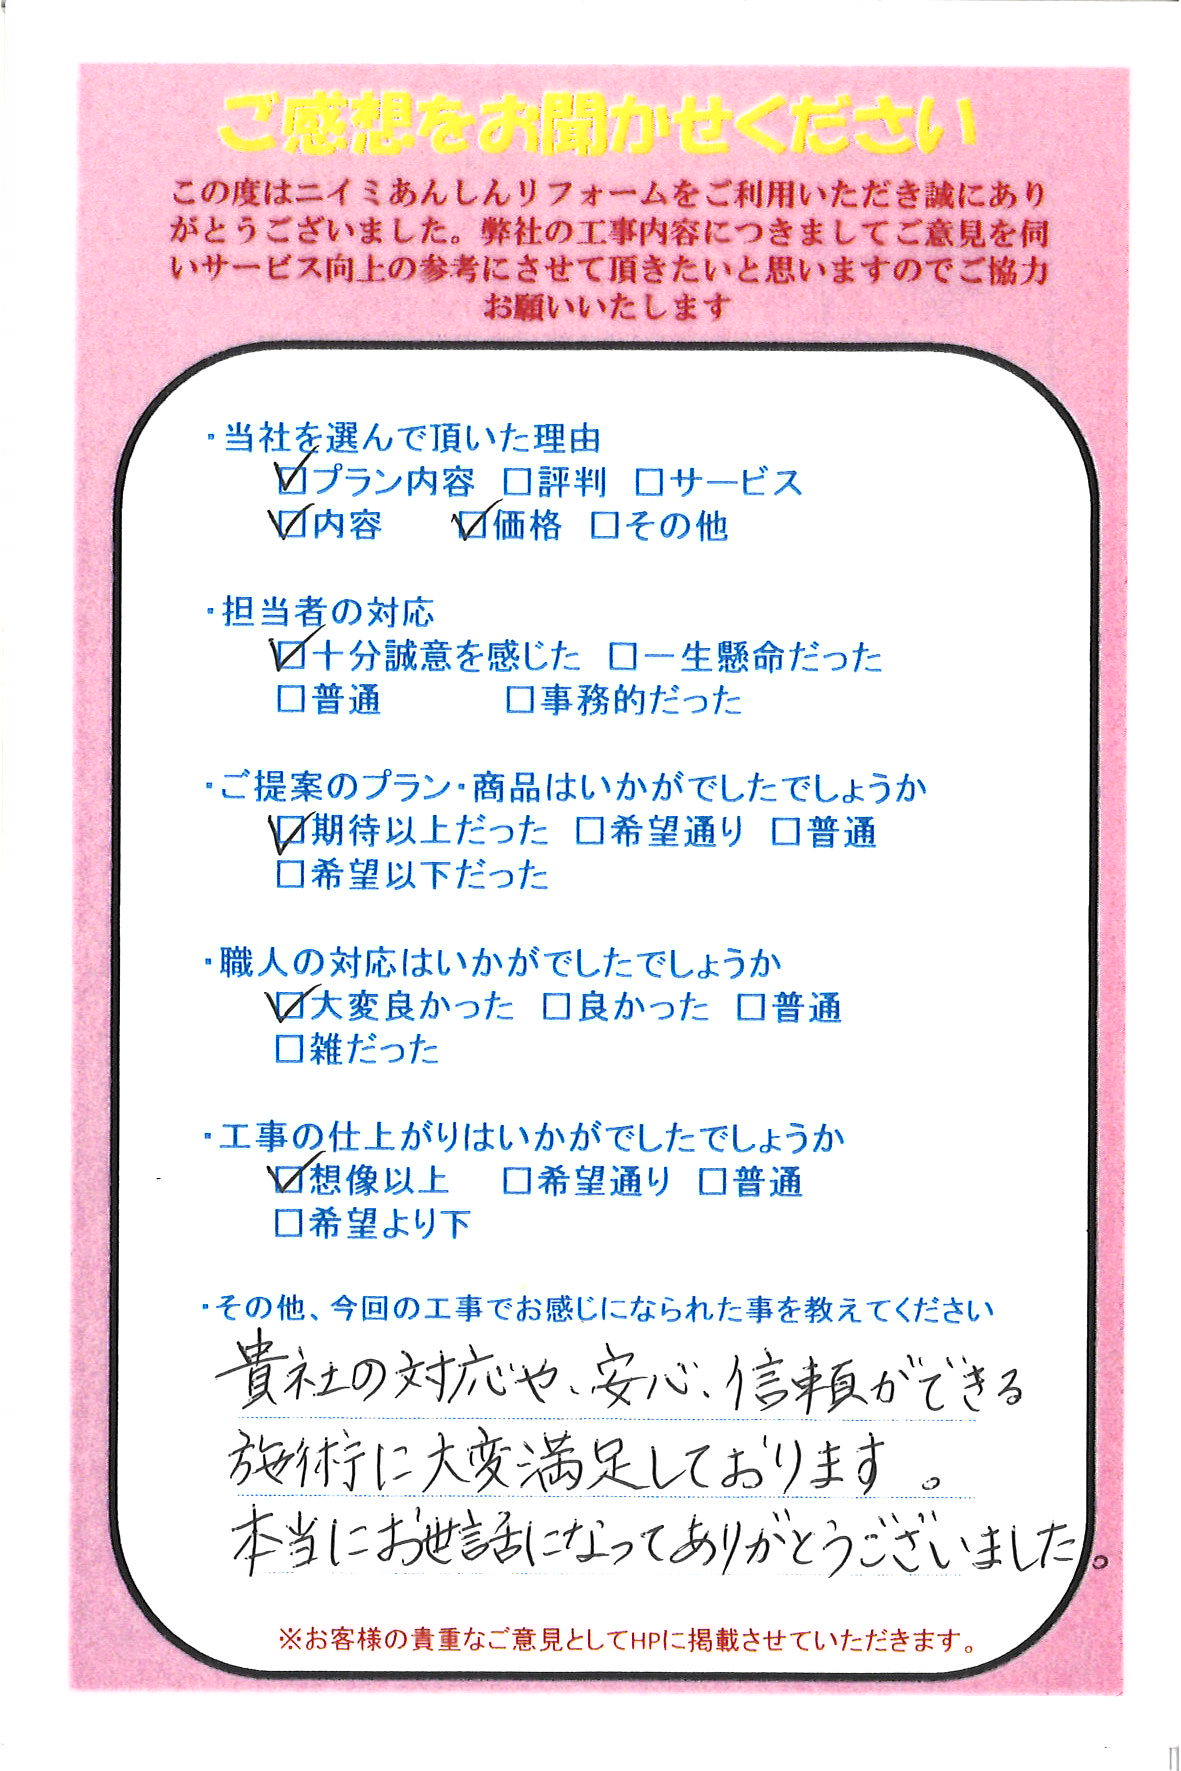 ご感想をお聞かせください
この度はニイミあんしんリフォームをご利用いただき誠にあり
がとうございました。弊社の工事内容につきましてご意見を伺
いサービス向上の参考にさせて頂きたいと思いますのでご協力
お願いいたします
・当社を選んで頂いた理由
☑プラン内容 □評判 □サービス
☑内容 ☑価格 □その他
・担当者の対応
☑十分誠意を感じた □一生懸命だった
□普通 □事務的だった
・ご提案のプラン・商品はいかがでしたでしょうか
☑期待以上だった □希望通り □普通
□希望以下だった
・職人の対応はいかがでしたでしょうか
☑大変良かった □良かった □普通
□雑だった
・工事の仕上がりはいかがでしたでしょうか
☑想像以上 □希望通り □普通
□希望より下
・その他、今回の工事でお感じになられた事を教えてください
貴社の対応や、安心、信頼ができる
施術に大変満足しております。
本当にお世話になってありがとうございました。
※お客様の貴重なご意見としてHPに掲載させていただきます。